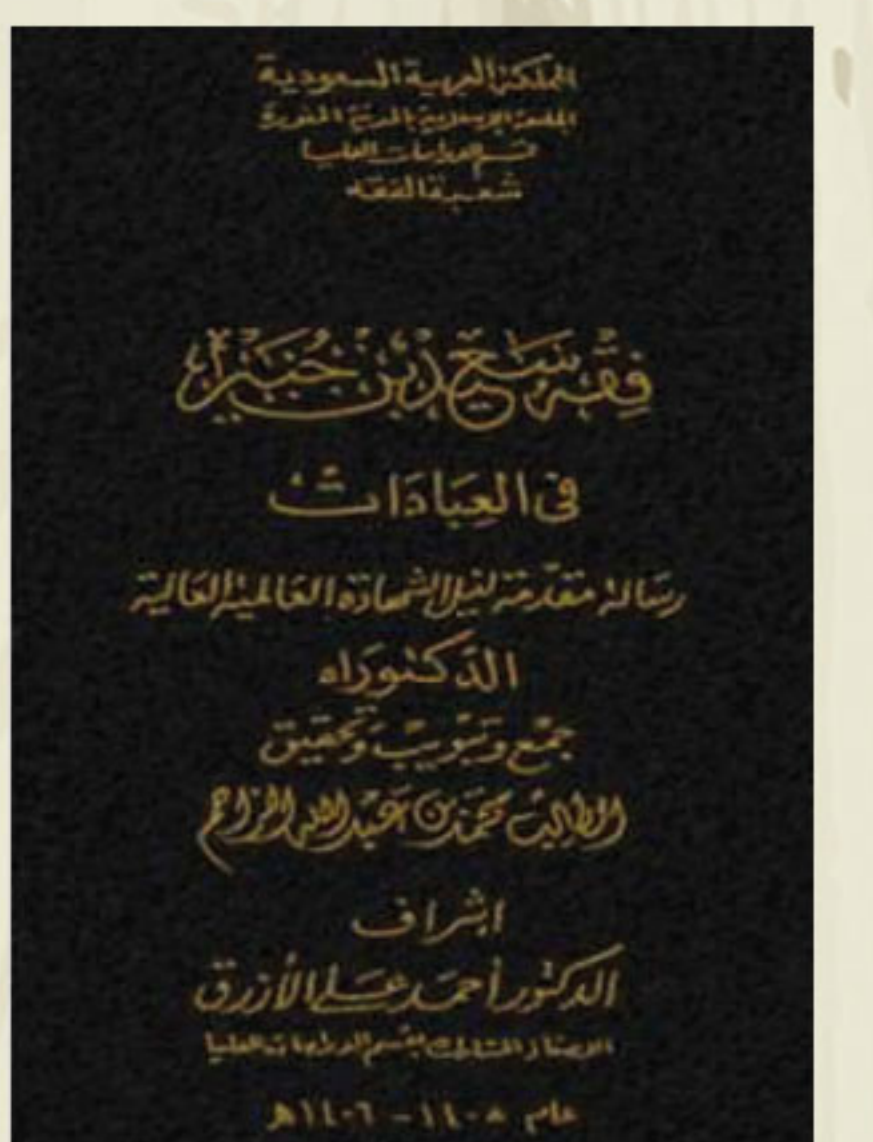 المملكة العربية السعودية
الجامعة الإسلامية بالمدينة المنورة
قسم الدراسات العليا
شعبة الفقه
فِقْه سَعِيْد بْن جُبَيْر
فى العِبَادَات
رسَالة مقدّمة لنيل الشهادة العَالمية العَالية
الدّكتورَاه
جمْع وَتبْويبْ وَتحقيق
الطالب محمّد بن عَبْد الله الزاحم
اشراف
الدكتور أحمَد عَلي الأزرق
الاستاذ المشارك بقسم الدراسات العليا
عام ١٤٠٥ - ١٤٠٦هـ